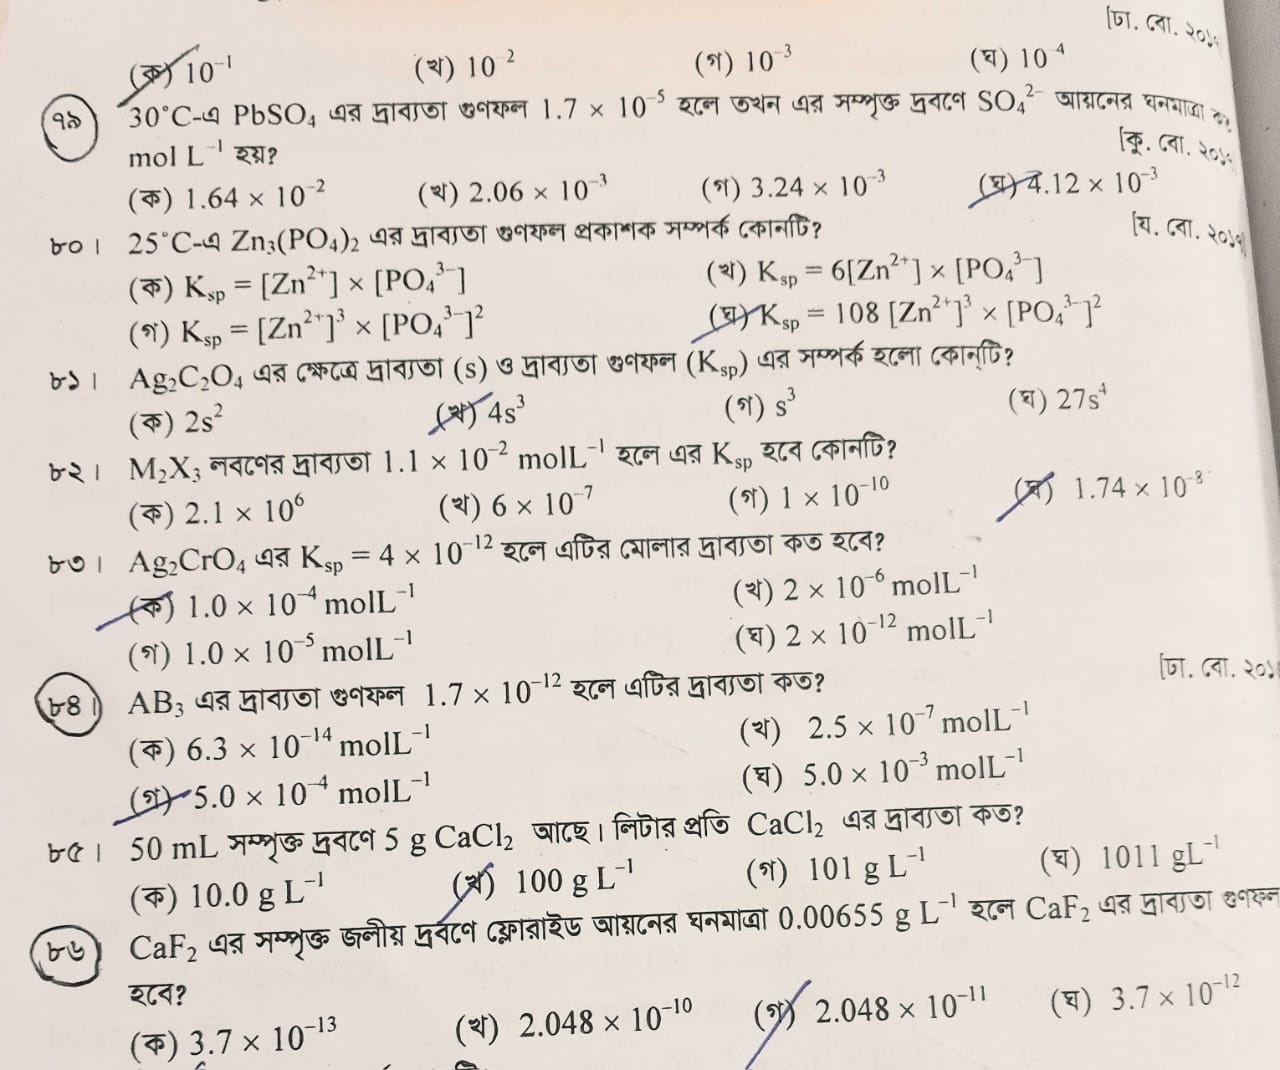 [ঢা. বো. ২০১
(ক) 10⁻¹ (খ) 10⁻² (গ) 10⁻³ (ঘ) 10⁻⁴
৭৯ 30°C-এ PbSO₄ এর দ্রাব্যতা গুণফল 1.7 × 10⁻⁵ হলে তখন এর সম্পৃক্ত দ্রবণে SO₄²⁻ আয়নের ঘনমাত্রা কত
mol L⁻¹ হয়? [কু. বো. ২০১
(ক) 1.64 × 10⁻² (খ) 2.06 × 10⁻³ (গ) 3.24 × 10⁻³ (ঘ) 4.12 × 10⁻³
৮০। 25°C-এ Zn₃(PO₄)₂ এর দ্রাব্যতা গুণফল প্রকাশক সম্পর্ক কোনটি? [য. বো. ২০১
(ক) Kₛₚ = [Zn²⁺] × [PO₄³⁻] (খ) Kₛₚ = 6[Zn²⁺] × [PO₄³⁻]
(গ) Kₛₚ = [Zn²⁺]³ × [PO₄³⁻]² (ঘ) Kₛₚ = 108 [Zn²⁺]³ × [PO₄³⁻]²
৮১। Ag₂C₂O₄ এর ক্ষেত্রে দ্রাব্যতা (s) ও দ্রাব্যতা গুণফল (Kₛₚ) এর সম্পর্ক হলো কোন্‌টি?
(ক) 2s² (খ) 4s³ (গ) s³ (ঘ) 27s⁴
৮২। M₂X₃ লবণের দ্রাব্যতা 1.1 × 10⁻² molL⁻¹ হলে এর Kₛₚ হবে কোনটি?
(ক) 2.1 × 10⁶ (খ) 6 × 10⁻⁷ (গ) 1 × 10⁻¹⁰ (ঘ) 1.74 × 10⁻⁸
৮৩। Ag₂CrO₄ এর Kₛₚ = 4 × 10⁻¹² হলে এটির মোলার দ্রাব্যতা কত হবে?
(ক) 1.0 × 10⁻⁴ molL⁻¹ (খ) 2 × 10⁻⁶ molL⁻¹
(গ) 1.0 × 10⁻⁵ molL⁻¹ (ঘ) 2 × 10⁻¹² molL⁻¹
৮৪। AB₃ এর দ্রাব্যতা গুণফল 1.7 × 10⁻¹² হলে এটির দ্রাব্যতা কত? [ঢা. বো. ২০১
(ক) 6.3 × 10⁻¹⁴ molL⁻¹ (খ) 2.5 × 10⁻⁷ molL⁻¹
(গ) 5.0 × 10⁻⁴ molL⁻¹ (ঘ) 5.0 × 10⁻³ molL⁻¹
৮৫। 50 mL সম্পৃক্ত দ্রবণে 5 g CaCl₂ আছে। লিটার প্রতি CaCl₂ এর দ্রাব্যতা কত?
(ক) 10.0 g L⁻¹ (খ) 100 g L⁻¹ (গ) 101 g L⁻¹ (ঘ) 1011 gL⁻¹
৮৬ CaF₂ এর সম্পৃক্ত জলীয় দ্রবণে ফ্লোরাইড আয়নের ঘনমাত্রা 0.00655 g L⁻¹ হলে CaF₂ এর দ্রাব্যতা গুণফল
হবে?
(ক) 3.7 × 10⁻¹³ (খ) 2.048 × 10⁻¹⁰ (গ) 2.048 × 10⁻¹¹ (ঘ) 3.7 × 10⁻¹²